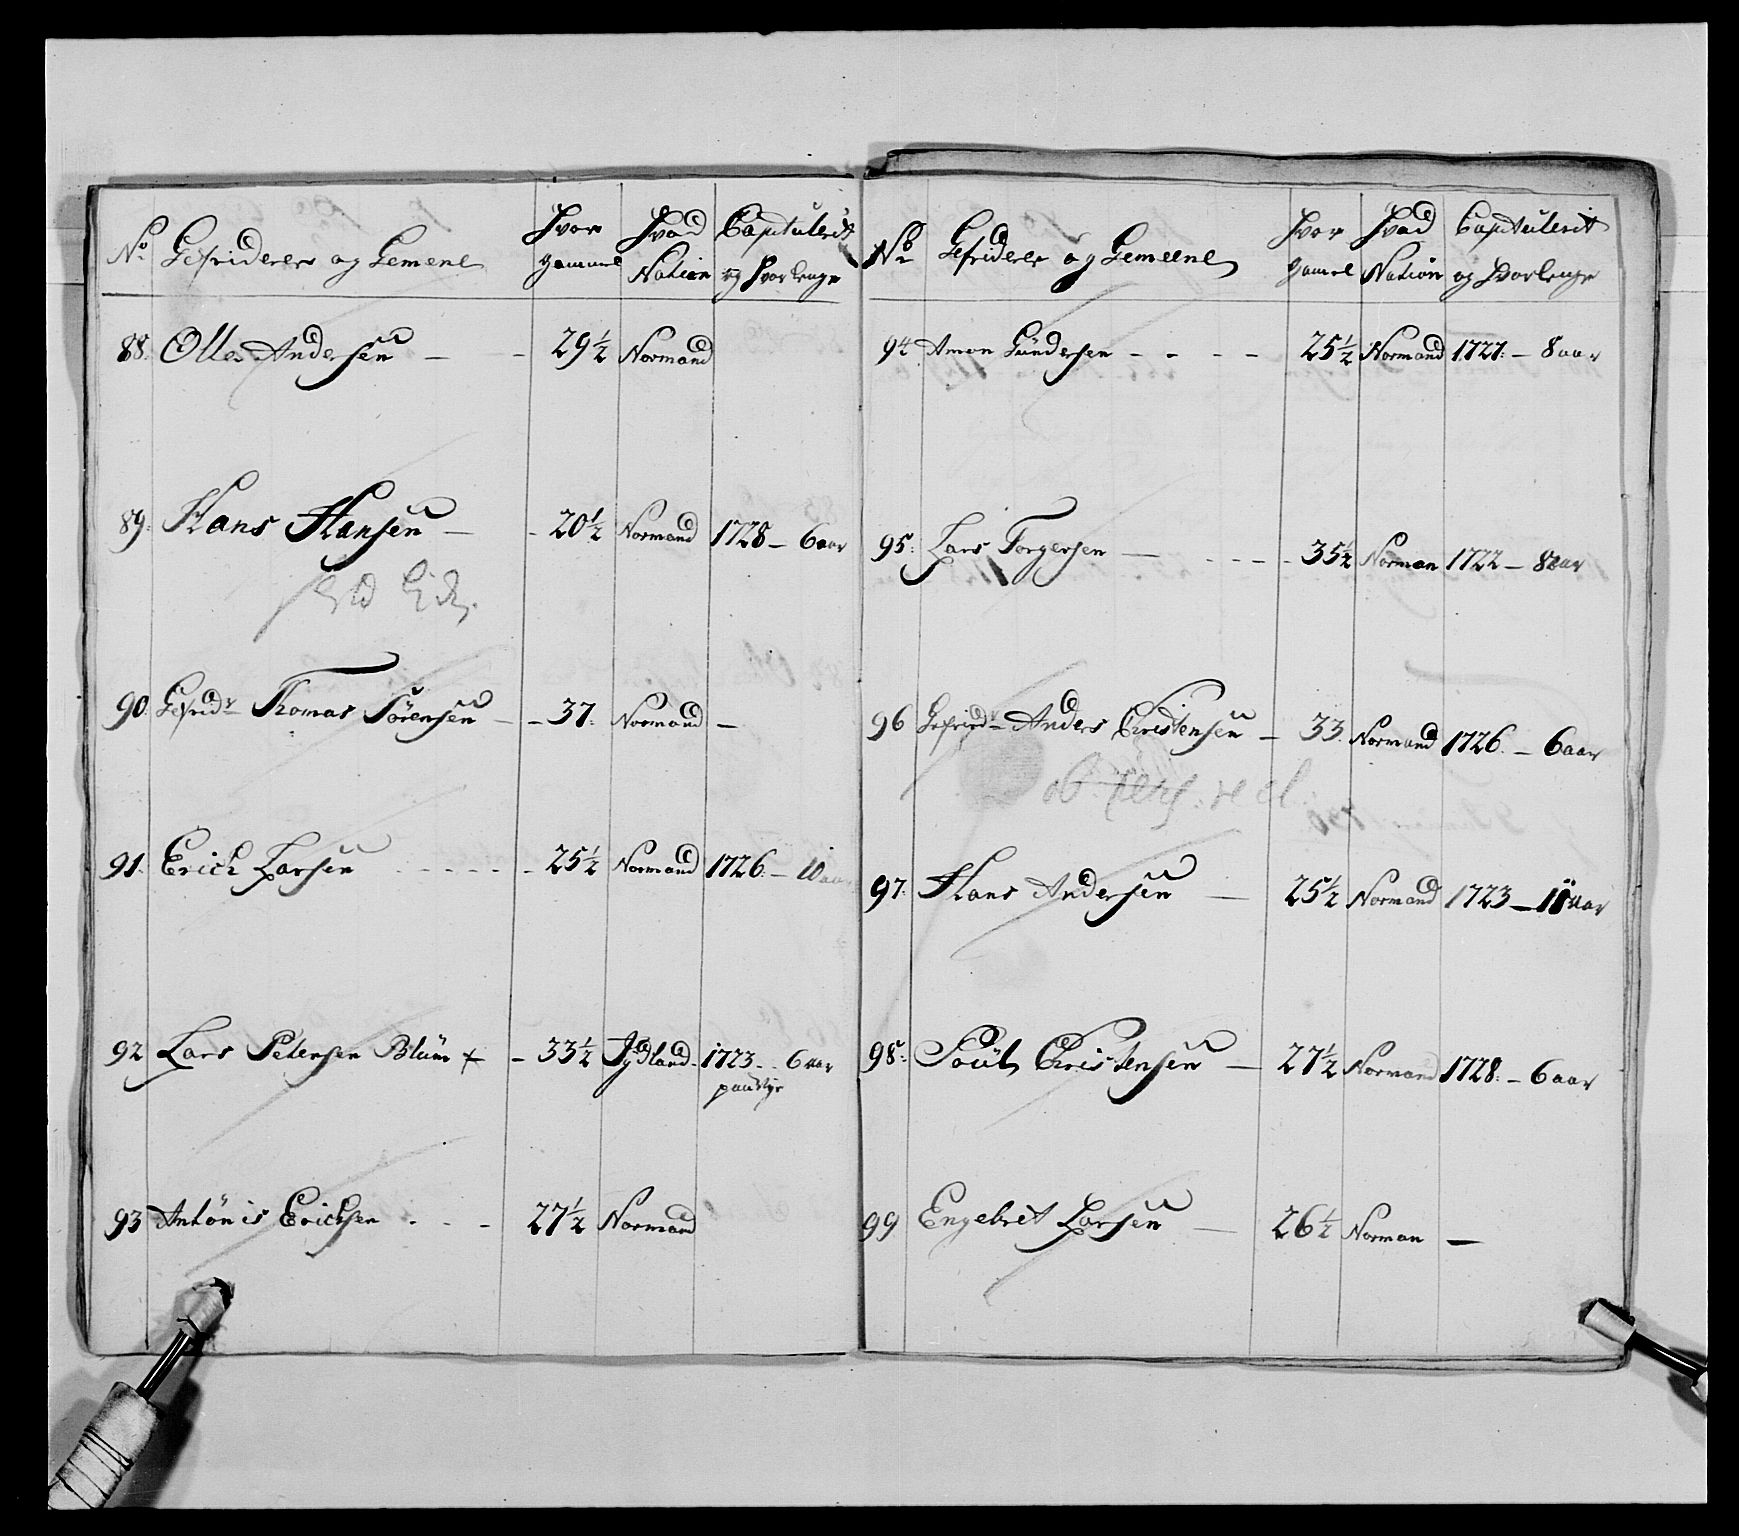 No Gefriderer og Gemene Hvor gammel Hvad Nation Captulerit og Hvorlenge
88. Olle Andersen — - 29½ Normand
89. Hans Hansen — - 20½ Normand 1728 — 6 aar
90. Gefridr Thomas Sörensen - - 37. Normand —
91. Erich Larsen - - - - - - 25½ Normand 1726. — 10 aar
92 Lars Petersen Blüm + - 33½ Jydland. 1723. . 6 aar
paa Nye
93 Antönis Erichsen . - - 27½ Normand
No Gefriderer og Gemeene Hvor gamel Hvad Nation Captulerit og Hvorlenge
94 Amon Gündersen - - - - 25½ Normand 1727. — 8 aar
95. Lars Torgersen — - - - - 35½ Norman 1722 — 8 aar
96 Gefridr Anders Christensen — 33. Normand 1726. — 6 aar
97. Hans Andersen — 25½ Normand 1723 — 11 aar
98. Poül Christensen — 27½ Normand 1728. — 6 aar
99 Engebret Larsen — 26½ Norman —